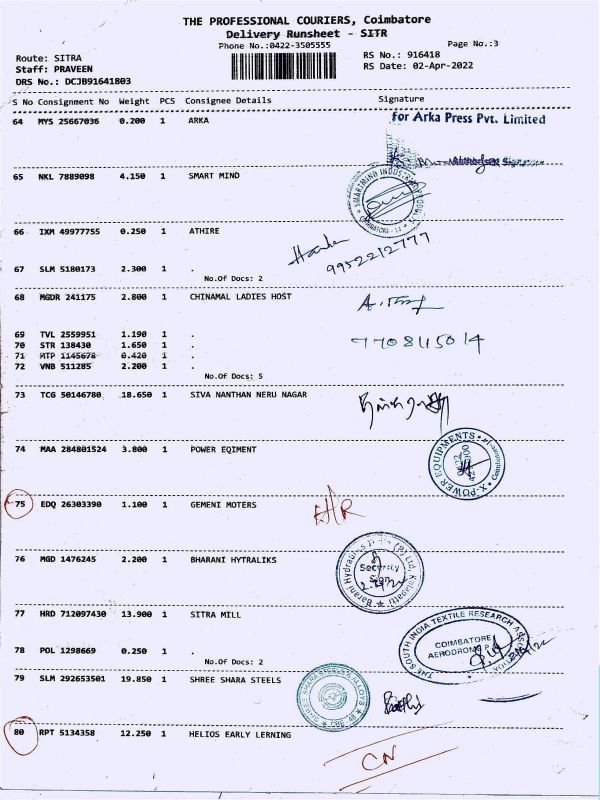 THE PROFESSIONAL COURIERS, Coimbatore
Delivery Runsheet - SITR
Phone No.:0422-3505555
Page No.:3
Route: SITRA
RS No.: 916418
Staff: PRAVEEN
RS Date: 02-Apr-2022
DRS No.: DCJB91641803
S No Consignment No Weight PCS Consignee Details Signature
64 MYS 25667036 0.200 1 ARKA
for Arka Press Pvt. Limited
65 NKL 7889098 4.150 1 SMART MIND
66 IXM 49977755 0.250 1 ATHIRE
9952212777
67 SLM 5180173 2.300 1 .
No.Of Docs: 2
68 MGDR 241175 2.800 1 CHINAMAL LADIES HOST
69 TVL 2559951 1.190 1 .
70 STR 138430 1.650 1 .
7708115014
71 MTP 1145678 0.420 1 .
72 VNB 511285 2.200 1 .
No.Of Docs: 5
73 TCG 50146780 18.650 1 SIVA NANTHAN NERU NAGAR
74 MAA 284801524 3.800 1 POWER EQIMENT
X-POWER EQUIPMENTS
75 EDQ 26303390 1.100 1 GEMENI MOTERS
76 MGD 1476245 2.200 1 BHARANI HYTRALIKS
Security
77 HRD 712097430 13.900 1 SITRA MILL
THE SOUTH INDIA TEXTILE RESEARCH
COIMBATORE
AERODROME P
78 POL 1298669 0.250 1 .
No.Of Docs: 2
79 SLM 292653501 19.850 1 SHREE SHARA STEELS
80 RPT 5134358 12.250 1 HELIOS EARLY LERNING
CN